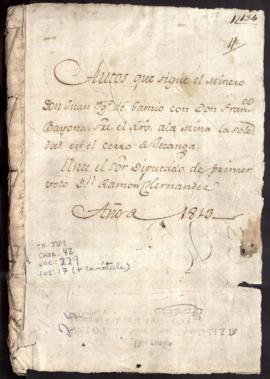 1134
Autos que sigue el Minero
Don Juan Ygo. de Gamio con Don Franco
Bayona, sre. el dro. a la Mina la Sole
dad en el cerro de
Ante el Sor Diputado de primer
voto Dn. Ramon Hernandez
Año de 1813
TM-JU1
CAJA: 42
DOC: 229
FOL: 17 (+ carátula)